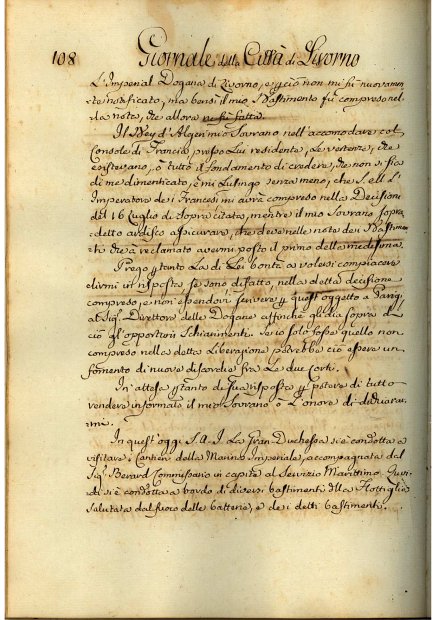 108 Giornale della Città di Livorno
L'Imperial Dogana di Livorno, e p ciò non mi fù nuovamen
te notificato, ma bensì il mio Bastimento fù compreso nel
la nota, che allora ne fù fatta.
Il Bey d'Algeri mio Sovrano nell'accomodare col
Console di Francia, presso Lui residente, le vertenze, che
esistevano, ò tutto il fondamento di credere, che non si sia
di me dimenticato, e mi lusingo senza meno, che S. e R. l'
Imperatore de' Francesi mi avrà compreso nella Decisione
del 16 Luglio di sopra citata, mentre il mio Sovrano sopra
detto ardisco assicurare, che deve nelle note dei Bastimen
ti che à reclamato avermi posto il primo della medesima.
Prego p tanto La di Lei bontà a volersi compiacere
dirmi in risposta se sono difatto, nella detta decisione
compreso, e non essendovi scrivere p quest'oggetto a Parigi
al Sig.r Direttore delle Dogane affinchè gli dia sopra di
ciò gl'opportuni Schiarimenti. Se io solo fosse quello non
compreso nella detta Liberazione potrebbe ciò essere un
fomento di nuove discordie fra Le due Corti.
In attesa p tanto di sua risposta p potere di tutto
rendere informato il mio Sovrano ò L'onore di dichiarar
mi.
In quest'oggi S. A. I. La Gran-Duchessa si è condotta a
visitare i Cantieri della Marina Imperiale, accompagnata dal
Sig.r Berard Commissario in capite al Servizio Marittimo. Quin
di si è condotta a bordo di diversi bastimenti della Flottiglia
salutata dal fuoco delle batterie, e dei detti bastimenti.